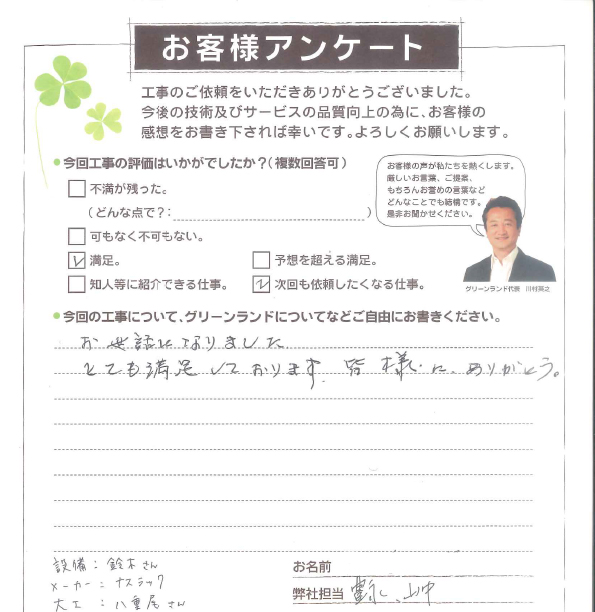 お客様アンケート
工事のご依頼をいただきありがとうございました。
今後の技術及びサービスの品質向上の為に、お客様の
感想をお書き下されば幸いです。よろしくお願いします。
●今回工事の評価はいかがでしたか？(複数回答可)
不満が残った。
(どんな点で？: )
可もなく不可もない。
満足。
予想を超える満足。
知人等に紹介できる仕事。
次回も依頼したくなる仕事。
お客様の声が私たちを熱くします。
厳しいお言葉、ご提案、
もちろんお誉めの言葉など
どんなことでも結構です。
是非お聞かせください。
グリーンランド代表 川村英之
●今回の工事について、グリーンランドについてなどご自由にお書きください。
お世話になりました
とても満足しております。皆様に、ありがとう。
設備：鈴木さん
メーカー：ナスラック
大工：八重尾さん
お名前
弊社担当